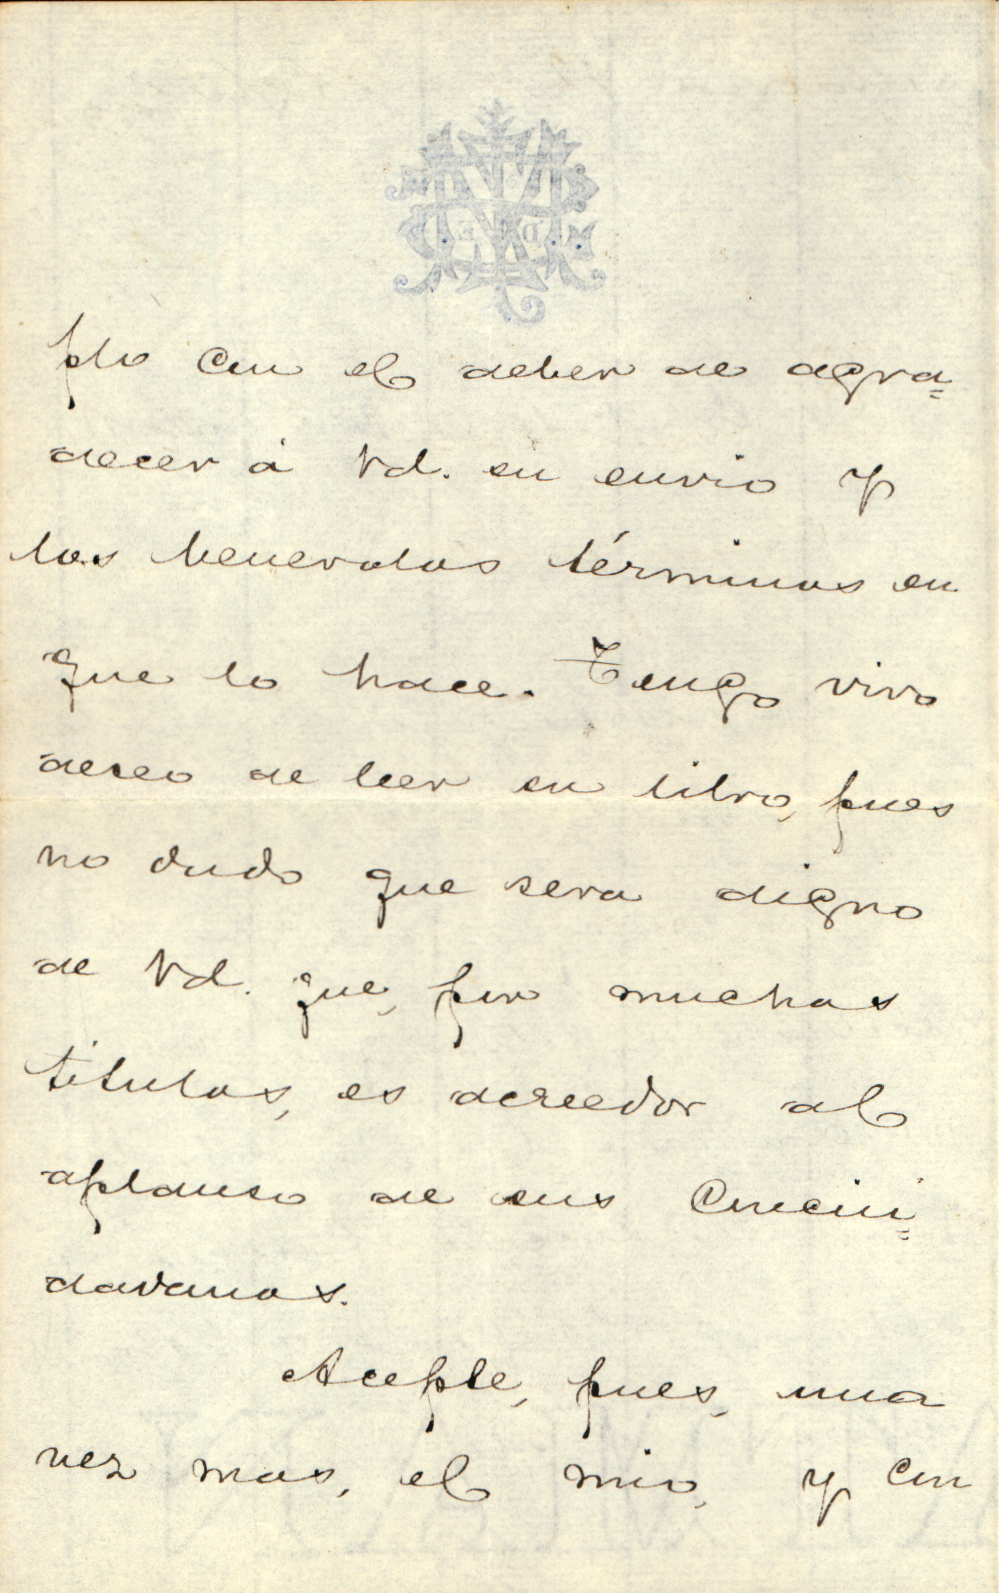 plo con el deber de agra=
decer á Vd. su envio y
los benevolos términos en
que lo hace. Tengo vivo
deseo de leer su libro, pues
no dudo que sera digno
de Vd. que, por muchos
titulos, es acreedor al
aplauso de sus conciu=
dadanos.
Acepte, pues, una
vez mas, el mio, y con